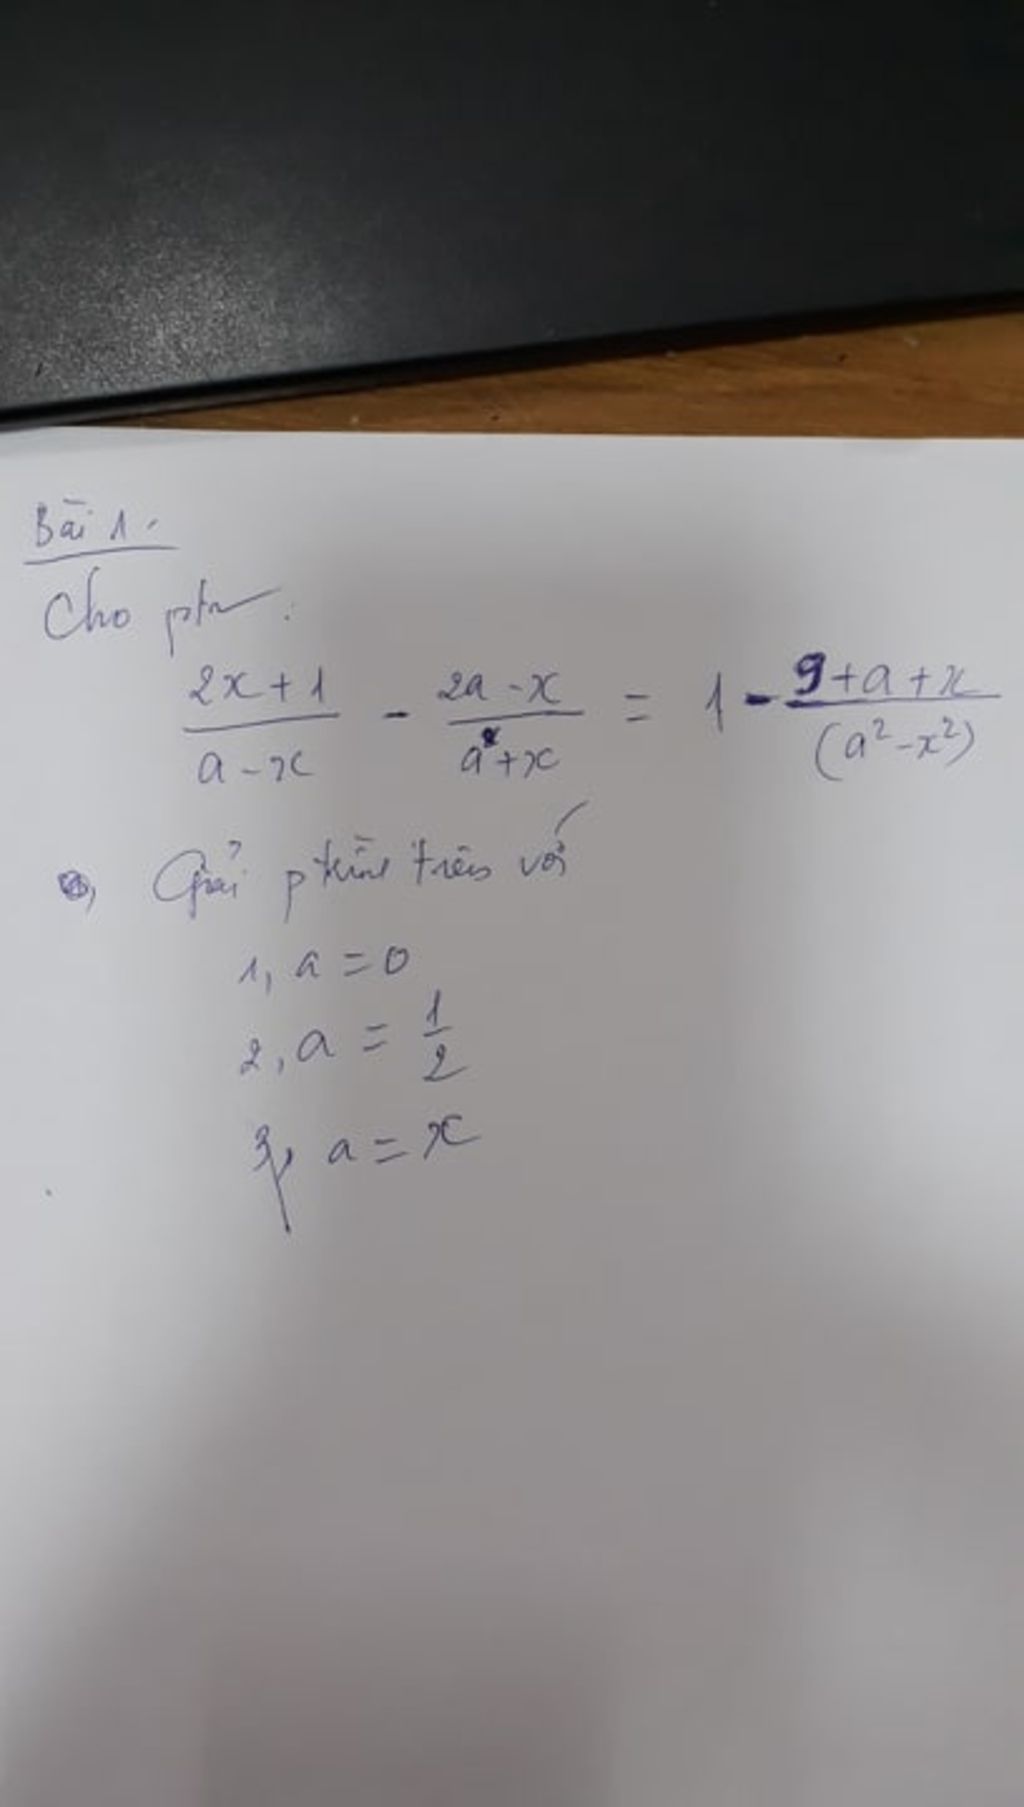 Bài 1.
Cho ptr:
(2x + 1)/(a - x) - (2a - x)/(a + x) = 1 - (9 + a + x)/(a² - x²)
Giải ptrình trên với
1, a = 0
2, a = 1/2
3, a = x